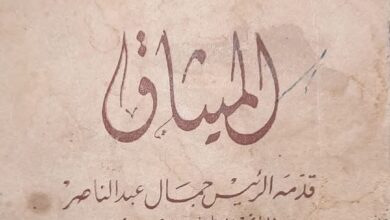 الميثاق
قدّمه الرئيس جمال عبد الناصر